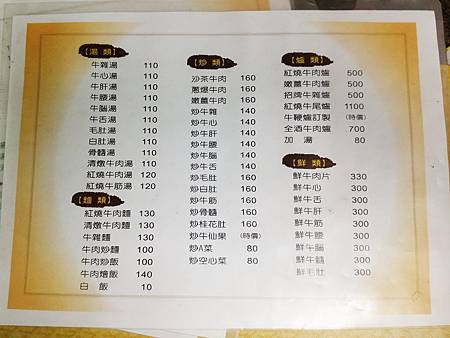 【湯 類】
牛雜湯 110
牛心湯 110
牛肝湯 110
牛腰湯 110
牛腦湯 110
牛舌湯 110
毛肚湯 110
白肚湯 110
骨髓湯 110
清燉牛肉湯 110
紅燒牛肉湯 120
紅燒牛筋湯 120
【麵 類】
紅燒牛肉麵 130
清燉牛肉麵 130
牛雜麵 130
牛肉炒麵 100
牛肉炒飯 100
牛肉燴飯 140
白 飯 10
【炒 類】
沙茶牛肉 160
蔥爆牛肉 160
嫩薑牛肉 160
炒牛雜 160
炒牛心 160
炒牛肝 160
炒牛腰 160
炒牛腦 160
炒牛舌 160
炒毛肚 160
炒白肚 160
炒牛筋 160
炒骨髓 160
炒桂花肚 160
炒牛仙果 (時價)
炒A菜 80
炒空心菜 80
【爐 類】
紅燒牛肉爐 500
嫩薑牛肉爐 500
招牌牛雜爐 500
紅燒牛尾爐 1100
牛鞭爐訂製 (時價)
全酒牛肉爐 700
加 湯 80
【鮮 類】
鮮牛肉片 330
鮮牛心 300
鮮牛舌 300
鮮牛肝 300
鮮牛筋 300
鮮牛腰 300
鮮牛腦 300
鮮牛髓 300
鮮毛肚 300